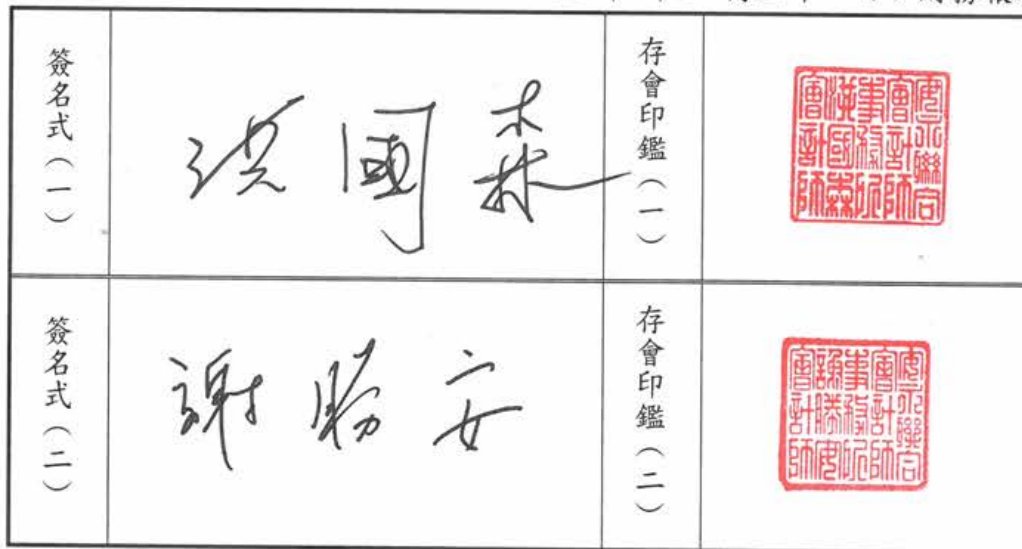 簽名式（一）
洪國森
存會印鑑（一）
安永聯合
會計師
事務所
洪國森
會計師
簽名式（二）
謝勝安
存會印鑑（二）
安永聯合
會計師
事務所
謝勝安
會計師